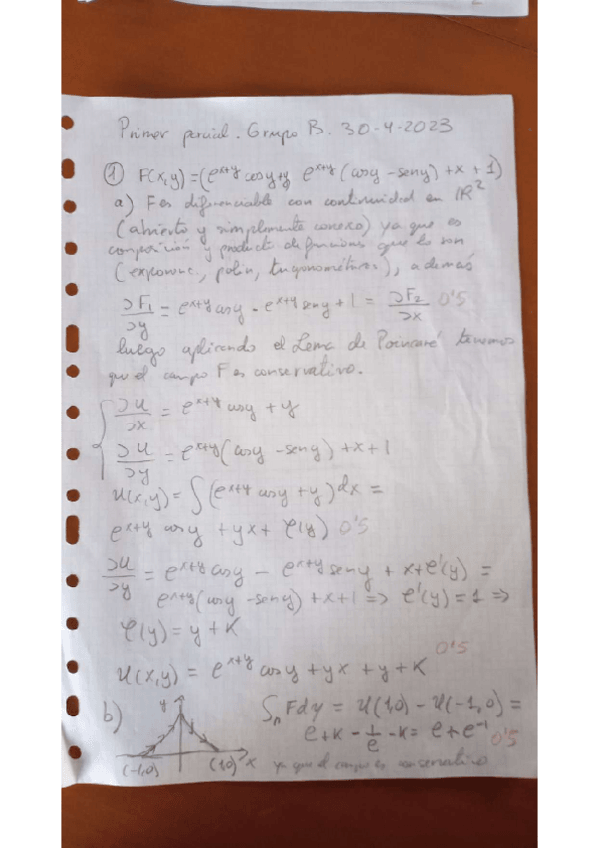 Primer parcial. Grupo B. 30-4-2023
① F(x,y)=(e^{x+y} cosy+y, e^{x+y}(cosy-seny)+x+1)
a) F es diferenciable con continuidad en ℝ²
(abierto y simplemente conexo) ya que es
composición y producto de funciones que lo son
(exponenc., polin, trigonométricas), además
∂F₁/∂y = e^{x+y} cosy - e^{x+y} seny + 1 = ∂F₂/∂x 0'5
luego aplicando el Lema de Poincaré tenemos
que el campo F es conservativo.
∂u/∂x = e^{x+y} cosy + y
∂u/∂y = e^{x+y}(cosy - seny) + x + 1
u(x,y) = ∫(e^{x+y} cosy + y)dx =
e^{x+y} cosy + yx + φ(y) 0'5
∂u/∂y = e^{x+y} cosy - e^{x+y} seny + x + φ'(y) =
e^{x+y}(cosy - seny) + x + 1 => φ'(y) = 1 =>
φ(y) = y + K
0'5
u(x,y) = e^{x+y} cosy + yx + y + K
b) y ∫ Fdγ = u(1,0) - u(-1,0) =
e + K - 1/e - K = e + e⁻¹ 0'5
(-1,0) (1,0) x ya que el campo es conservativo